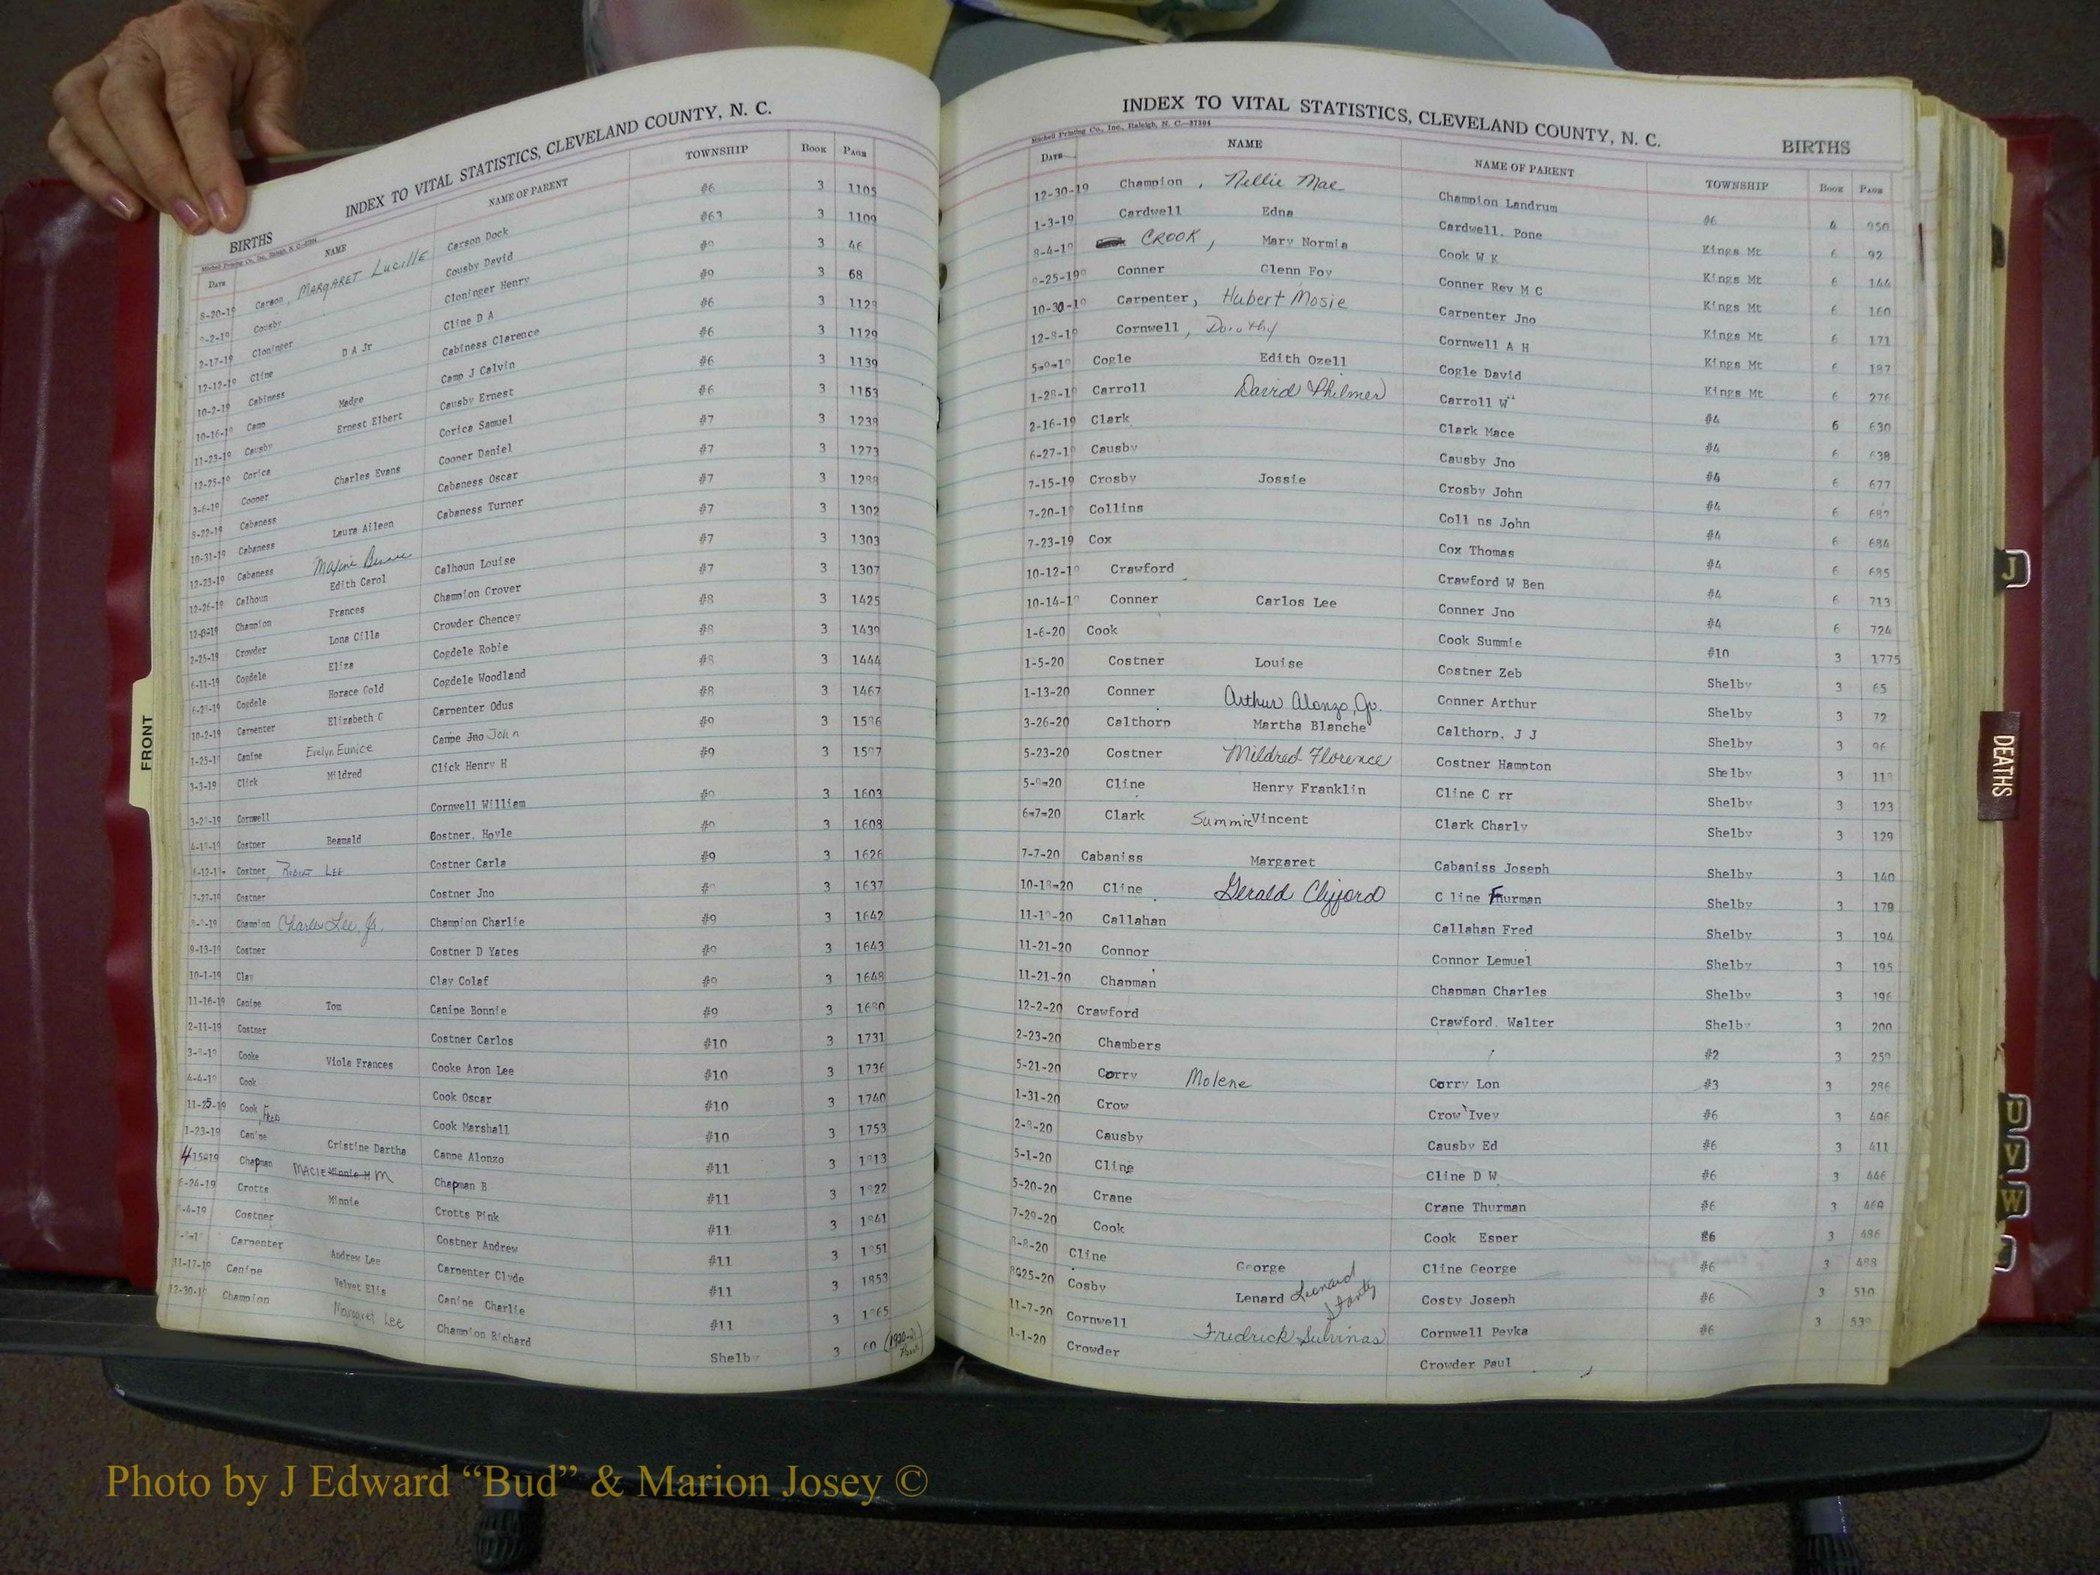 INDEX TO VITAL STATISTICS, CLEVELAND COUNTY, N. C.
BIRTHS
DATE NAME NAME OF PARENT TOWNSHIP BOOK PAGE
8-20-19 Carson, MARGARET LUCILLE Carson Dock #6 3 1105
Cousby Cousby David #63 3 1109
2-17-19 Cloninger Cloninger Henry #9 3 46
12-12-19 Cline D A Jr Cline D A #9 3 68
10-2-19 Cabiness Cabiness Clarence #6 3
10-16-19 Camp Madge Camp J Calvin #6 3 1129
11-23-19 Causby Ernest Elbert Causby Ernest #6 3 1139
12-25-19 Corica Corica Samuel #6 3 1153
3-6-19 Cooper Charles Evans Cooper Daniel #7 3 1238
8-22-19 Cabaness Cabaness Oscar #7 3 1273
10-31-19 Cabaness Laura Aileen Cabaness Turner #7 3
12-23-19 Cabaness Maxine #7 3 1302
12-26-19 Calhoun Edith Carol Calhoun Louise #7 3 1303
Champion Frances Champion Grover #7 3 1307
2-25-19 Crowder Lona Cills Crowder Chencey #8 3 1425
6-11-19 Cogdele Eliza Cogdele Robie #8 3 1439
Cogdele Horace Gold Cogdele Woodland #8 3 1444
10-2-19 Carpenter Elizabeth G Carpenter Odus #8 3 1467
Canipe Evelyn Eunice Canpe Jno John #9 3
3-3-19 Click Mildred Click Henry H #9 3
Cornwell Cornwell William 3 1603
Costner Beamald Costner, Hoyle 3 1608
Costner, ROBERT LEE Costner Carla #9 3 1626
Costner Costner Jno 3 1637
Champion Charles Lee, Jr. Champion Charlie #9 3 1642
9-13-19 Costner Costner D Yates 3 1643
10-1-19 Clay Clay Colaf #9 3 1648
11-16-19 Canipe Tom Canipe Bonnie #9 3
2-11-19 Costner Costner Carlos #10 3 1731
Cooke Viola Frances Cooke Aron Lee #10 3 1736
Cook Cook Oscar #10 3 1740
11-25-19 Cook, FRED Cook Marshall #10 3 1753
1-23-19 Canipe Cristine Dartha Canpe Alonzo #11 3
4-15-19 Chapman MACIE Minnie M M Chapman B #11 3
6-24-19 Crotts Minnie Crotts Pink #11 3
Costner Costner Andrew #11 3
Carpenter Andrew Lee Carpenter Clyde #11 3 1853
11-17-19 Canipe Velvet Elis Canipe Charlie #11 3
Champion Margaret Lee Champion Richard Shelby 3 60
FRONT
INDEX TO VITAL STATISTICS, CLEVELAND COUNTY, N. C.
Mitchell Printing Co., Inc., Raleigh, N. C.—37304
BIRTHS
DATE NAME NAME OF PARENT TOWNSHIP BOOK PAGE
12-30-19 Champion, Nellie Mae Champion Landrum #6 950
1-3-19 Cardwell Edna Cardwell. Pone Kings Mt 6 92
8-4-19 CROOK, Mary Normia Cook W K Kings Mt 6 144
Conner Glenn Foy Conner Rev M C Kings Mt 6 160
10-30-19 Carpenter, Hubert Mosie Carpenter Jno Kings Mt 6 171
12-8-19 Cornwell, Dorothy Cornwell A H Kings Mt 6 187
Cogle Edith Ozell Cogle David Kings Mt 6 276
1-28-19 Carroll David Philmer Carroll W #4 6 630
2-16-19 Clark Clark Mace #4 6 638
6-27-19 Causby Causby Jno #4 6 677
7-15-19 Crosby Jossie Crosby John #4 6 682
7-20-19 Collins Coll ns John #4 6 684
7-23-19 Cox Cox Thomas #4 6 685
10-12-19 Crawford Crawford W Ben #4 6 713
10-14-19 Conner Carlos Lee Conner Jno #4 6 724
1-6-20 Cook Cook Summie #10 3 1775
1-5-20 Costner Louise Costner Zeb Shelby 3 65
1-13-20 Conner Arthur Alonzo, Jr. Conner Arthur Shelby 3 72
3-26-20 Calthorp Martha Blanche Calthorp. J J Shelby 3 96
5-23-20 Costner Mildred Florence Costner Hampton Shelby 3
Cline Henry Franklin Cline C rr Shelby 3 123
6-7-20 Clark Summie Vincent Clark Charly Shelby 3 129
7-7-20 Cabaniss Margaret Cabaniss Joseph Shelby 3 140
10-18-20 Cline Gerald Clifford C line Furman Shelby 3 179
Callahan Callahan Fred Shelby 3 194
11-21-20 Connor Connor Lemuel Shelby 3 195
11-21-20 Chapman Chapman Charles Shelby 3 196
12-2-20 Crawford Crawford. Walter Shelby 3 200
2-23-20 Chambers #2 3 259
5-21-20 Corry Molene Corry Lon #3 3 286
1-31-20 Crow Crow Ivey #6 3 406
Causby Causby Ed #6 3 411
5-1-20 Cline Cline D W #6 3 446
5-20-20 Crane Crane Thurman #6 3
7-29-20 Cook Cook Esper #6 3 486
Cline George Cline George #6 3 488
Cosby Lenard Leonard Stanly Costy Joseph #6 3 510
11-7-20 Cornwell Fredrick Sulvinas Cornwell Pevka #6 3
1-1-20 Crowder Crowder Paul
J
DEATHS
U
V
W
Photo by J Edward “Bud” & Marion Josey ©